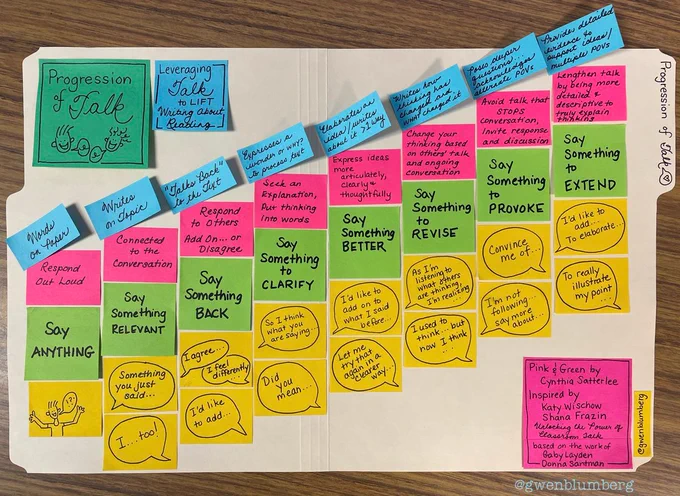 Progression
of Talk
Leveraging
Talk
to LIFT
Writing about
Reading
Words
on Paper
Respond
Out Loud
Say
ANYTHING
Writes
on Topic
Connected
to the
Conversation
Say
Something
RELEVANT
Something
you just
said...
I...too!
"Talks Back"
to the Text
Respond
to Others
Add On... or
Disagree
Say
Something
BACK
I agree...
I feel
differently
I'd like
to add...
Expresses a
wonder or why?
to process text
Seek an
Explanation,
Put thinking
into words
Say
Something
to
CLARIFY
So I think
what you
are saying...
Did
you
mean...
Elaborates an
idea / writes
about it >1 way
Express ideas
more
articulately,
clearly &
thoughtfully
Say
Something
BETTER
I'd like to
add on to
what I said
before...
Let me
try that
again in a
clearer
way...
Writes how
thinking has
changed and
what changed it
Change your
thinking based
on others' talk
and ongoing
conversation
Say
Something
to
REVISE
As I'm
listening to
what others
are thinking,
I'm realizing
I used to
think... but
now I think
...
Poses deeper
questions...
acknowledges
alternate POVs
Avoid talk that
STOPS
conversation,
Invite response
and discussion
Say
Something
to
PROVOKE
Convince
me of...
I'm not
following...
say more
about...
Provides detailed
evidence to
support ideas/
multiple POVs
Lengthen talk
by being more
detailed &
descriptive to
truly explain
thinking
Say
Something
to
EXTEND
I'd like to
add...
To elaborate...
To really
illustrate
my point
...
Progression of Talk
Pink & Green by
Cynthia Satterlee
Inspired by
Katy Wischow
Shana Frazin
Unlocking the Power of
Classroom Talk
based on the work of
Gaby Layden
Donna Santman
@gwenblumberg
@gwenblumberg